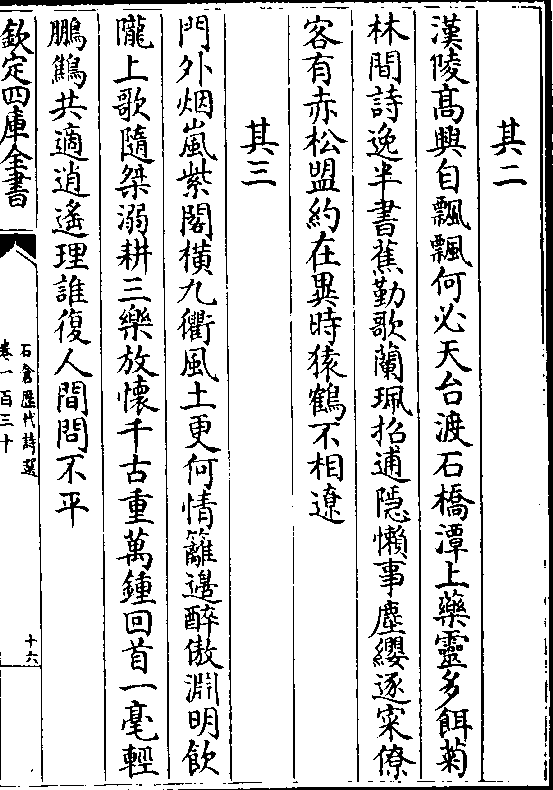 其二
漢陵髙興自飄飄何必天台渡石橋潭上藥靈多餌菊
林間詩逸半書蕉勤歌蘭珮招逋隠懶事塵纓逐寀僚
客有赤松盟約在異時猿鶴不相遼
其三
門外烟嵐紫閣橫九衢風土更何情籬邊醉傲淵明飲
隴上歌隨桀溺耕三樂放懐千古重萬鍾回首一毫輕
鵬鷦共適逍遙理誰復人間問不平
欽定四庫全書
石倉歷代詩選
卷一百三十
十六